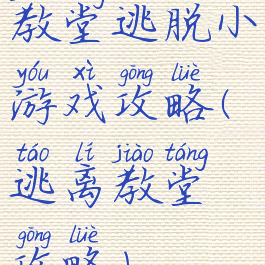 教堂逃脱小
yóu xì gōng lüè
游戏攻略(
táo lí jiào táng
逃离教堂
gōng lüè
攻略)